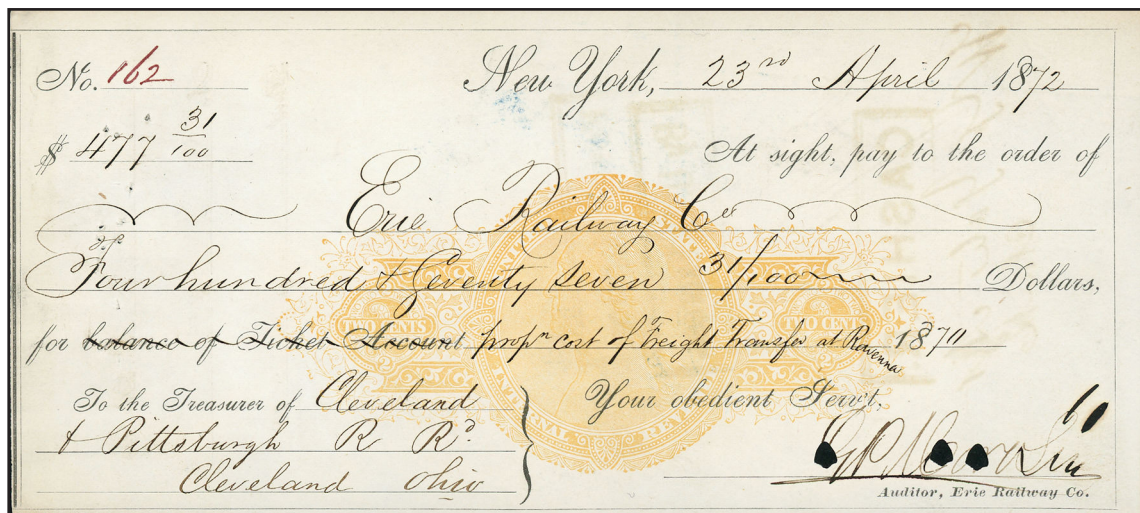 No. 162 New York, 23rd April 1872
$ 477 31/100 At sight, pay to the order of
Erie Railway Co
Four hundred & Seventy seven 31/100 Dollars,
for balance of Ticket Account propn cost of Freight Transfer at Ravenna 1870
To the Treasurer of Cleveland Your obedient Servt,
& Pittsburgh R Rd
Cleveland Ohio
Auditor, Erie Railway Co.
UNITED STATES
TWO CENTS TWO CENTS
INTERNAL REVENUE